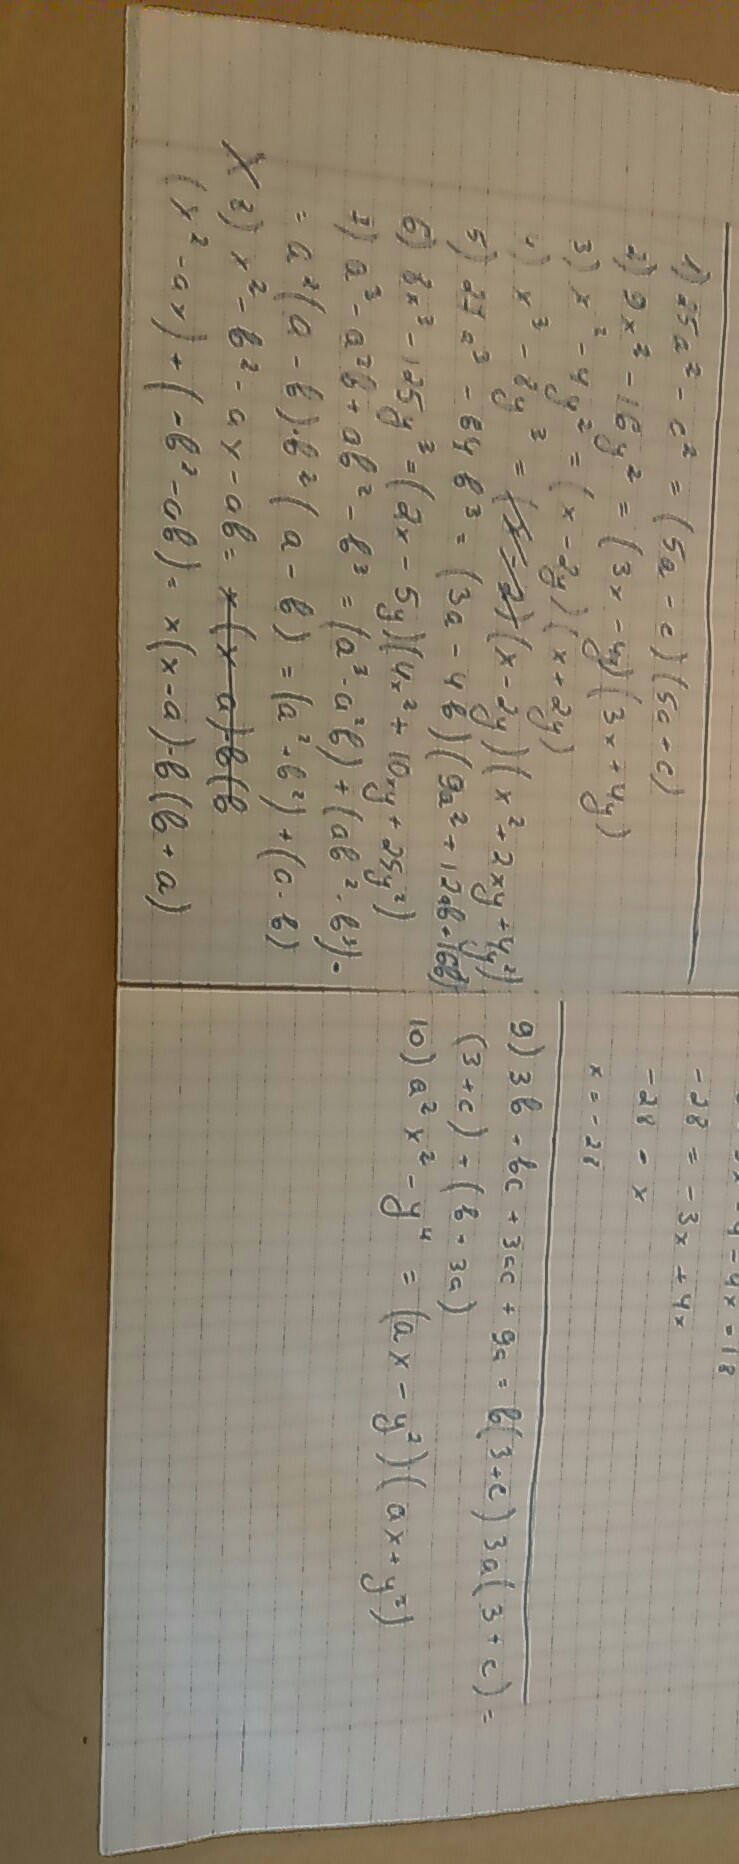 1) 25a² - c² = (5a - c)(5a + c)
2) 9x² - 16y² = (3x - 4y)(3x + 4y)
3) x² - 4y² = (x - 2y)(x + 2y)
4) x³ - 8y³ = (x - 2y)(x² + 2xy + 4y²)
5) 27a³ - 64b³ = (3a - 4b)(9a² + 12ab + 16b)
6) 8x³ - 125y³ = (2x - 5y)(4x² + 10xy + 25y²)
7) a³ - a²b + ab² - b³ = (a³ - a²b) + (ab² - b³) =
= a²(a - b) + b²(a - b) = (a² + b²) + (a - b)
8) x² - b² - ax - ab = x(x - a) - b(b
(x² - ax) + (-b² - ab) = x(x - a) - b(b + a)
-4x = 18
-28 = -3x + 4x
-28 = x
x = -28
9) 3b + bc + 3ac + 9a = b(3 + c) 3a(3 + c) =
(3 + c) + (b + 3a)
10) a²x² - y⁴ = (ax - y²)(ax + y²)